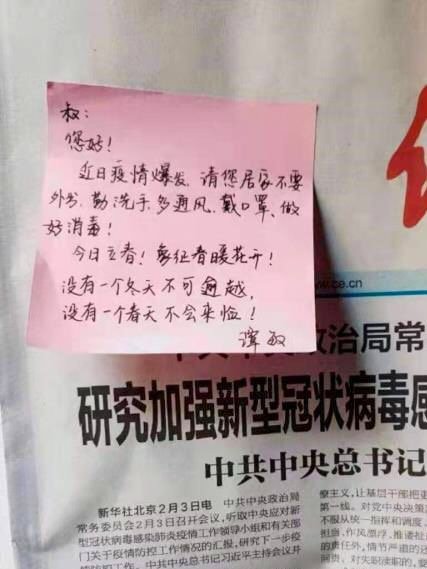 叔：
您好！
近日疫情爆发，请您居家不要
外出，勤洗手、多通风、戴口罩、做
好消毒！
今日立春！象征春暖花开！
没有一个冬天不可逾越，
没有一个春天不会来临！
谭敏
www.ce.cn
政治局常
研究加强新型冠状病毒感
中共中央总书记
新华社北京2月3日电 中共中央政治局
常务委员会2月3日召开会议，听取中央应对新
型冠状病毒感染肺炎疫情工作领导小组和有关部
门关于疫情防控工作情况的汇报，研究下一步疫
情防控工作。中共中央总书记习近平主持会议并
僚主义，让基层干部把更
第一线。对党中央决策
不服从统一指挥和调度、
担当，作风漂浮，推诿扯皮
的责任外，情节严重的还